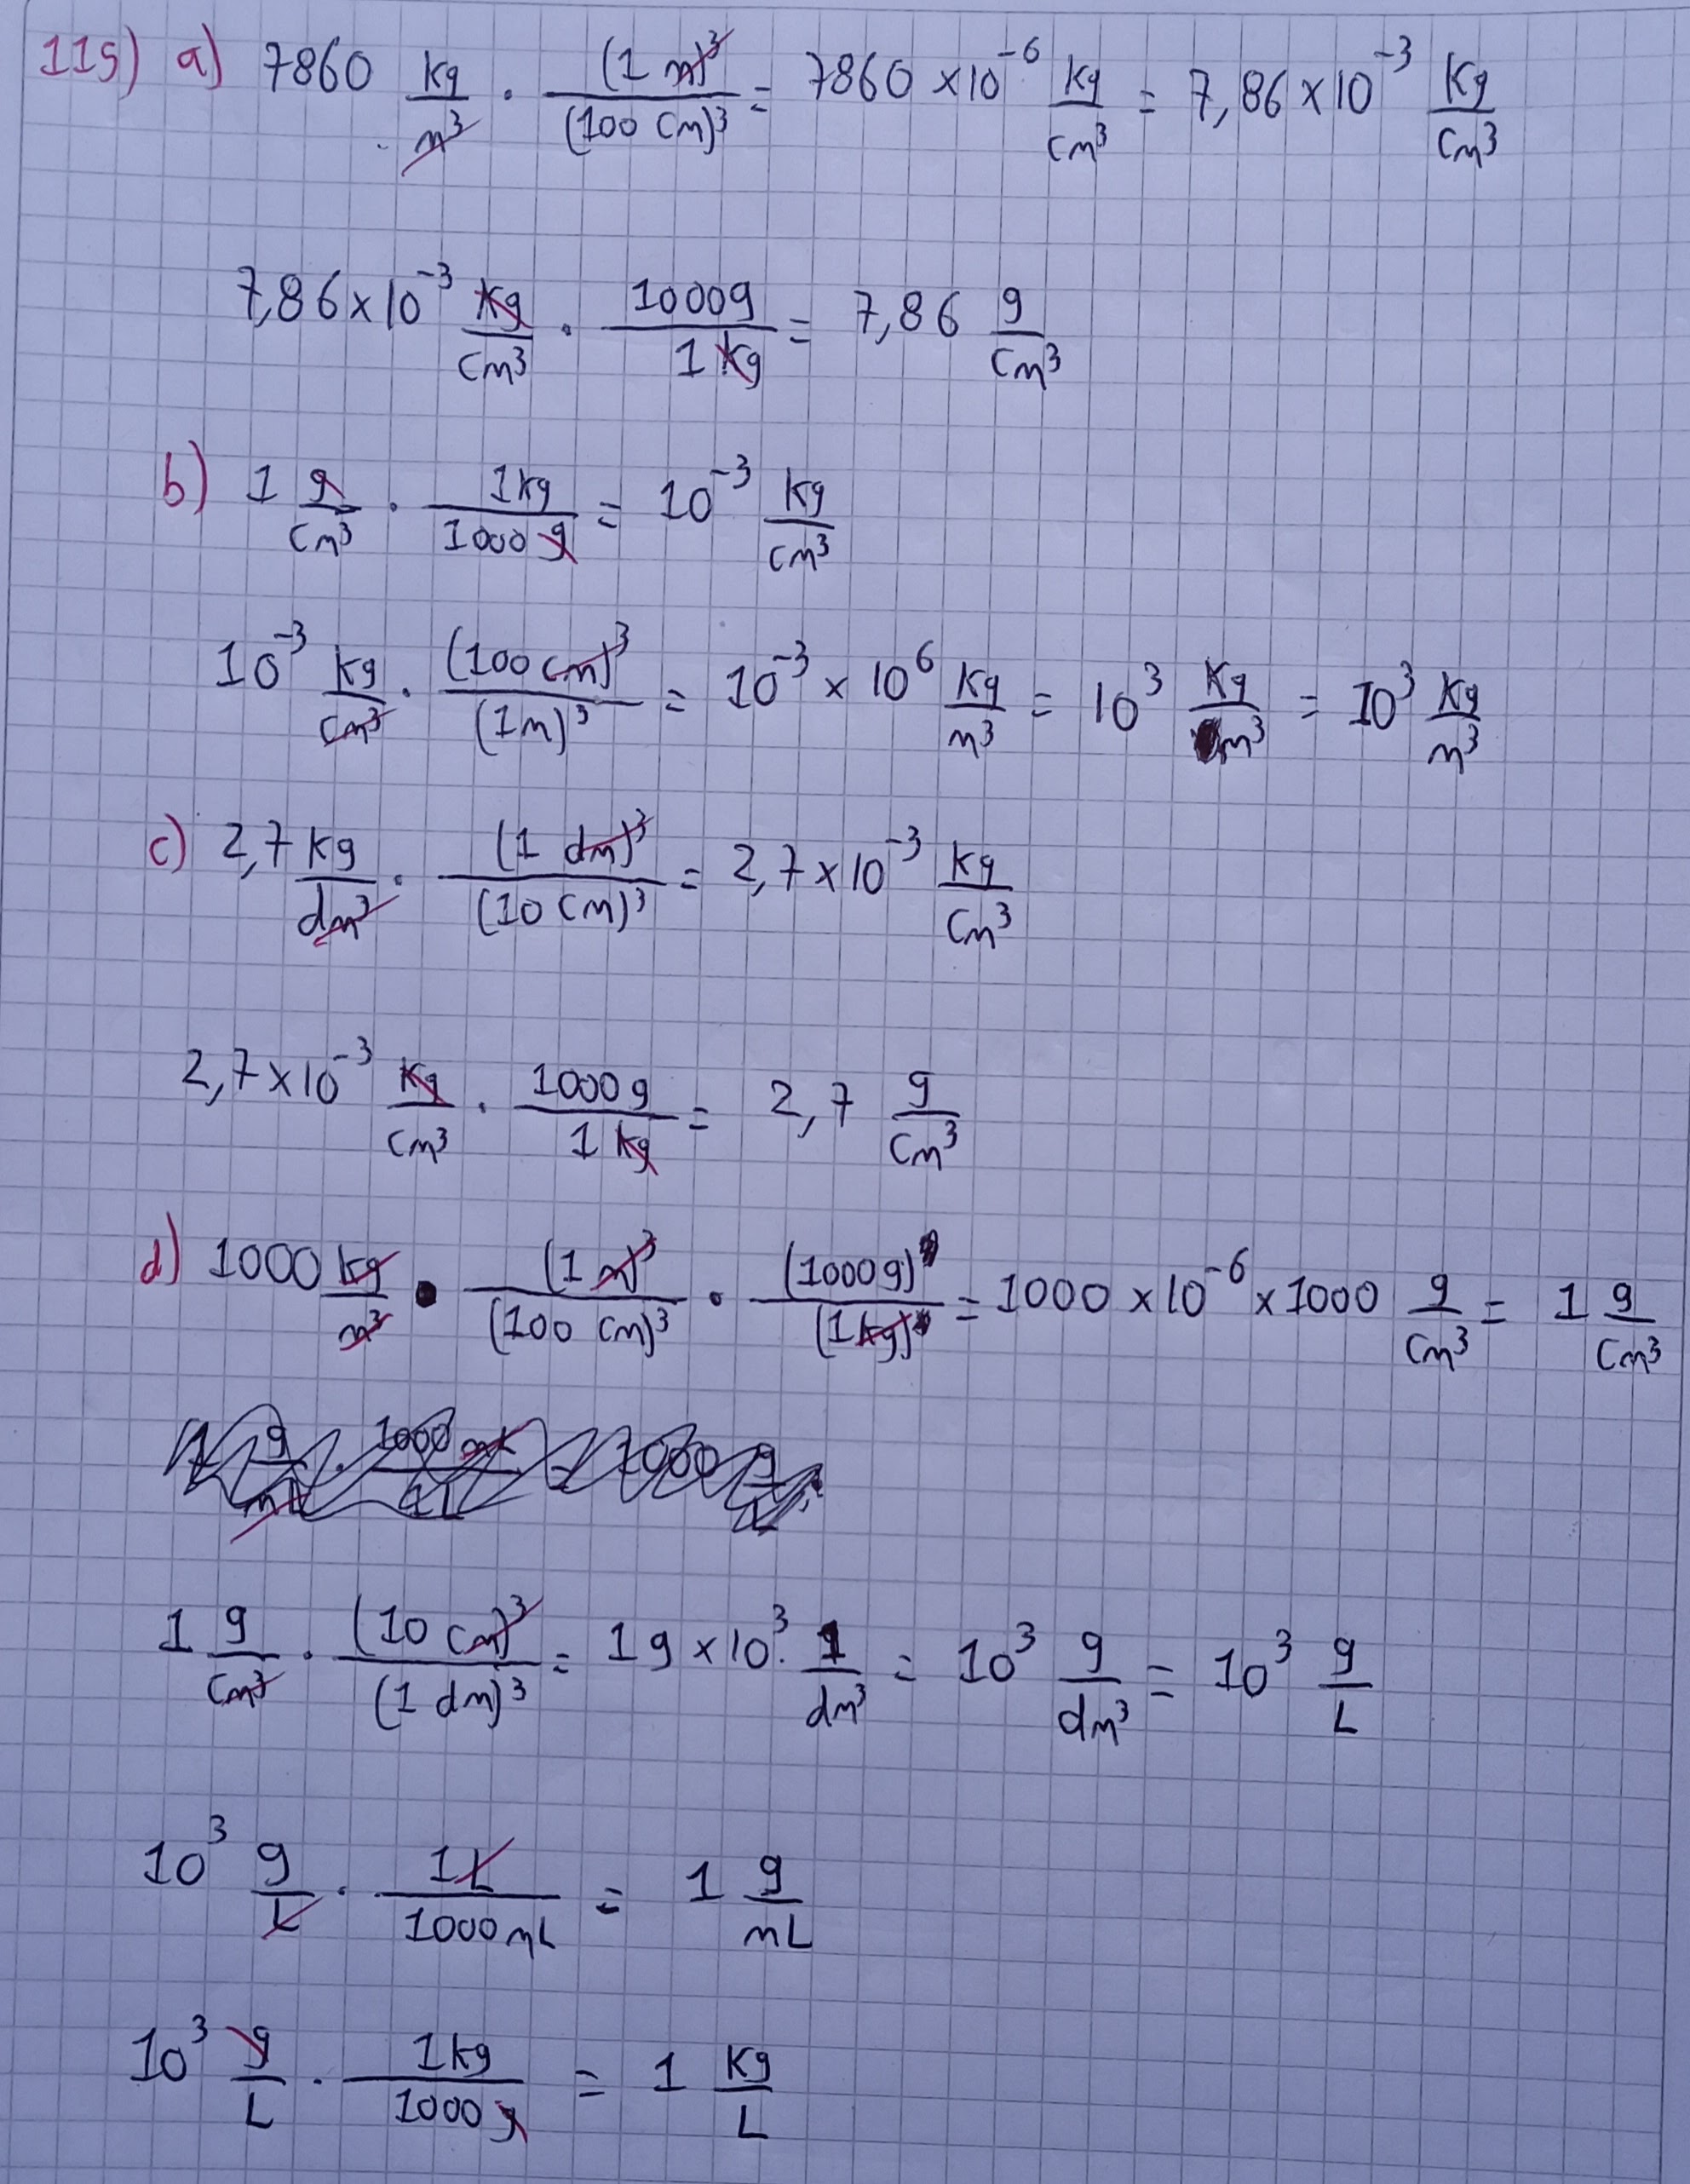 115) a) 7860 kg/m³ · (1 m)³/(100 cm)³ = 7860 x10⁻⁶ kg/cm³ = 7,86 x10⁻³ kg/cm³
7,86 x10⁻³ kg/cm³ · 1000g/1 kg = 7,86 g/cm³
b) 1 g/cm³ · 1kg/1000 g = 10⁻³ kg/cm³
10⁻³ kg/cm³ · (100 cm)³/(1m)³ = 10⁻³ x 10⁶ kg/m³ = 10³ kg/m³ = 10³ kg/m³
c) 2,7 kg/dm³ · (1 dm)³/(10 cm)³ = 2,7 x10⁻³ kg/cm³
2,7 x10⁻³ kg/cm³ · 1000 g/1 kg = 2,7 g/cm³
d) 1000 kg/m³ · (1 m)³/(100 cm)³ · (1000 g)/(1kg) = 1000 x10⁻⁶ x 1000 g/cm³ = 1 g/cm³
1 g/cm³ · (10 cm)³/(1 dm)³ = 1 g x 10³ · 1/dm³ = 10³ g/dm³ = 10³ g/L
10³ g/L · 1L/1000 mL = 1 g/mL
10³ g/L · 1kg/1000 g = 1 kg/L